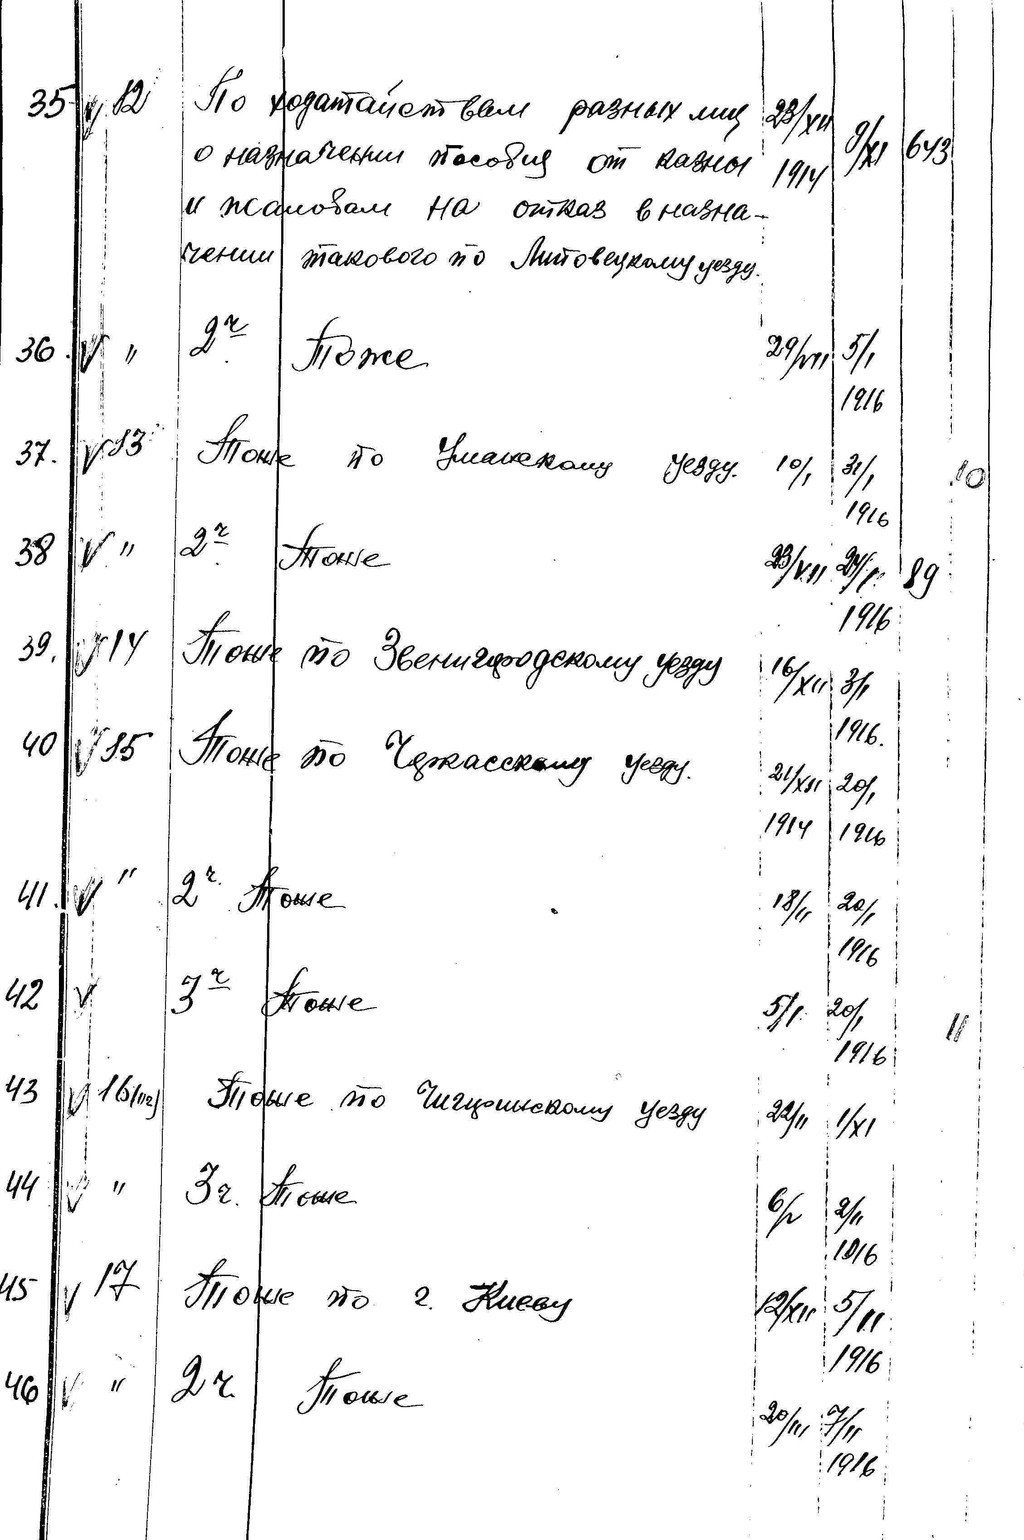 35 12 По ходатайствам разных лиц 23/XII 9/XI 643
о назначении пособия от казны 1914
и жалобам на отказ в назна-
чении такового по Липовецкому уезду.
36. " 2ч Тоже 29/VII 5/I
1916
37. 13 Тоже по Уманскому уезду. 10/I 31/I 10
1916
38 " 2ч Тоже 23/VII 24/I 89
1916
39. 14 Тоже по Звенигородскому уезду 16/XII 3/I
1916.
40 15 Тоже по Черкасскому уезду. 21/XII 20/I
1914 1916
41. " 2ч. Тоже 18/II 20/I
1916
42 3ч Тоже 5/I 20/I 11
1916
43 16 Тоже по Чигиринскому уезду 22/II 1/XI
44 " 3ч. Тоже 6/V 2/II
1916
45 17 Тоже по г. Киеву 12/XII 5/II
1916
46 " 2ч. Тоже 20/III 7/II
1916